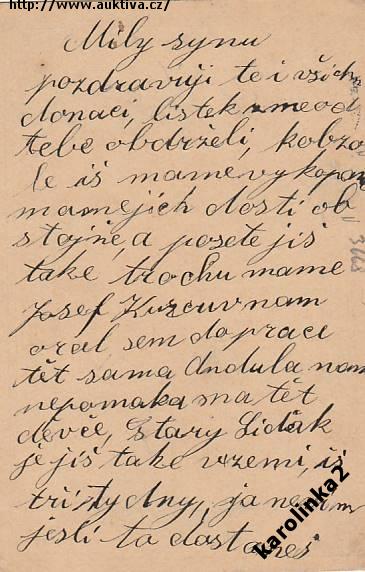 http://www.auktiva.cz/
Milý synu
pozdravuji te i všich
donaci, listek zme od
tebe obdrželi, kobzo
le iš mame vykopan
mame jich dosti ob
stojně, a posete jiš
take trochu mame
Josef Kuzcuv nam
oral, sem do prace
tět sama Andula nam
nepomaka ma tět
děvče, Stary Lidak
je jiš take v zemi, iš
tři tydny, ja nevim
jesli to dostaneš
3668
karolinka2